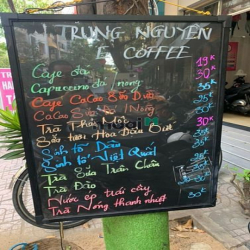 TRUNG NGUYÊN
E COFFEE
Cafe đá 19K
Capuccino đá / nóng 30K
Cafe CaCao Sữa Dừa
CaCao Sữa Đá / Nóng 35K
Trà Thảo Mộc 30K
Sữa tươi Hoa Đậu 35K
Sinh tố Dâu 35K
Sinh tố Việt Quất 35K
Trà Sữa Trân Châu
Trà Đào 35K
Nước ép trái cây
Trà Nóng thanh nhiệt 30K
TRÀ